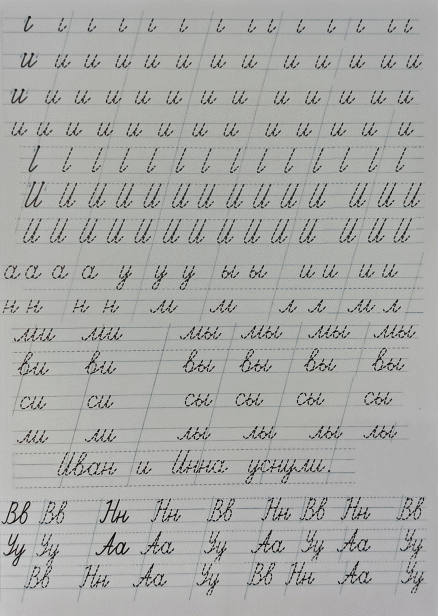 и и и и и и и и и и и и и
и и и и и и и и и и и и и
и и и и и и и и и и и и и
И И И И И И И И И И И И И И
И И И И И И И И И И И И И И
а а а а у у у ы ы и и и и
н н н н м м л л м л
ми ми мы мы мы мы
ви ви вы вы вы вы
си си сы сы сы сы
ли ли лы лы лы лы
Иван и Инна уснули.
Вв Вв Нн Нн Вв Нн Вв Нн Вв
Уу Уу Аа Аа Уу Аа Уу Аа Уу
Вв Нн Аа Уу Вв Нн Аа Уу